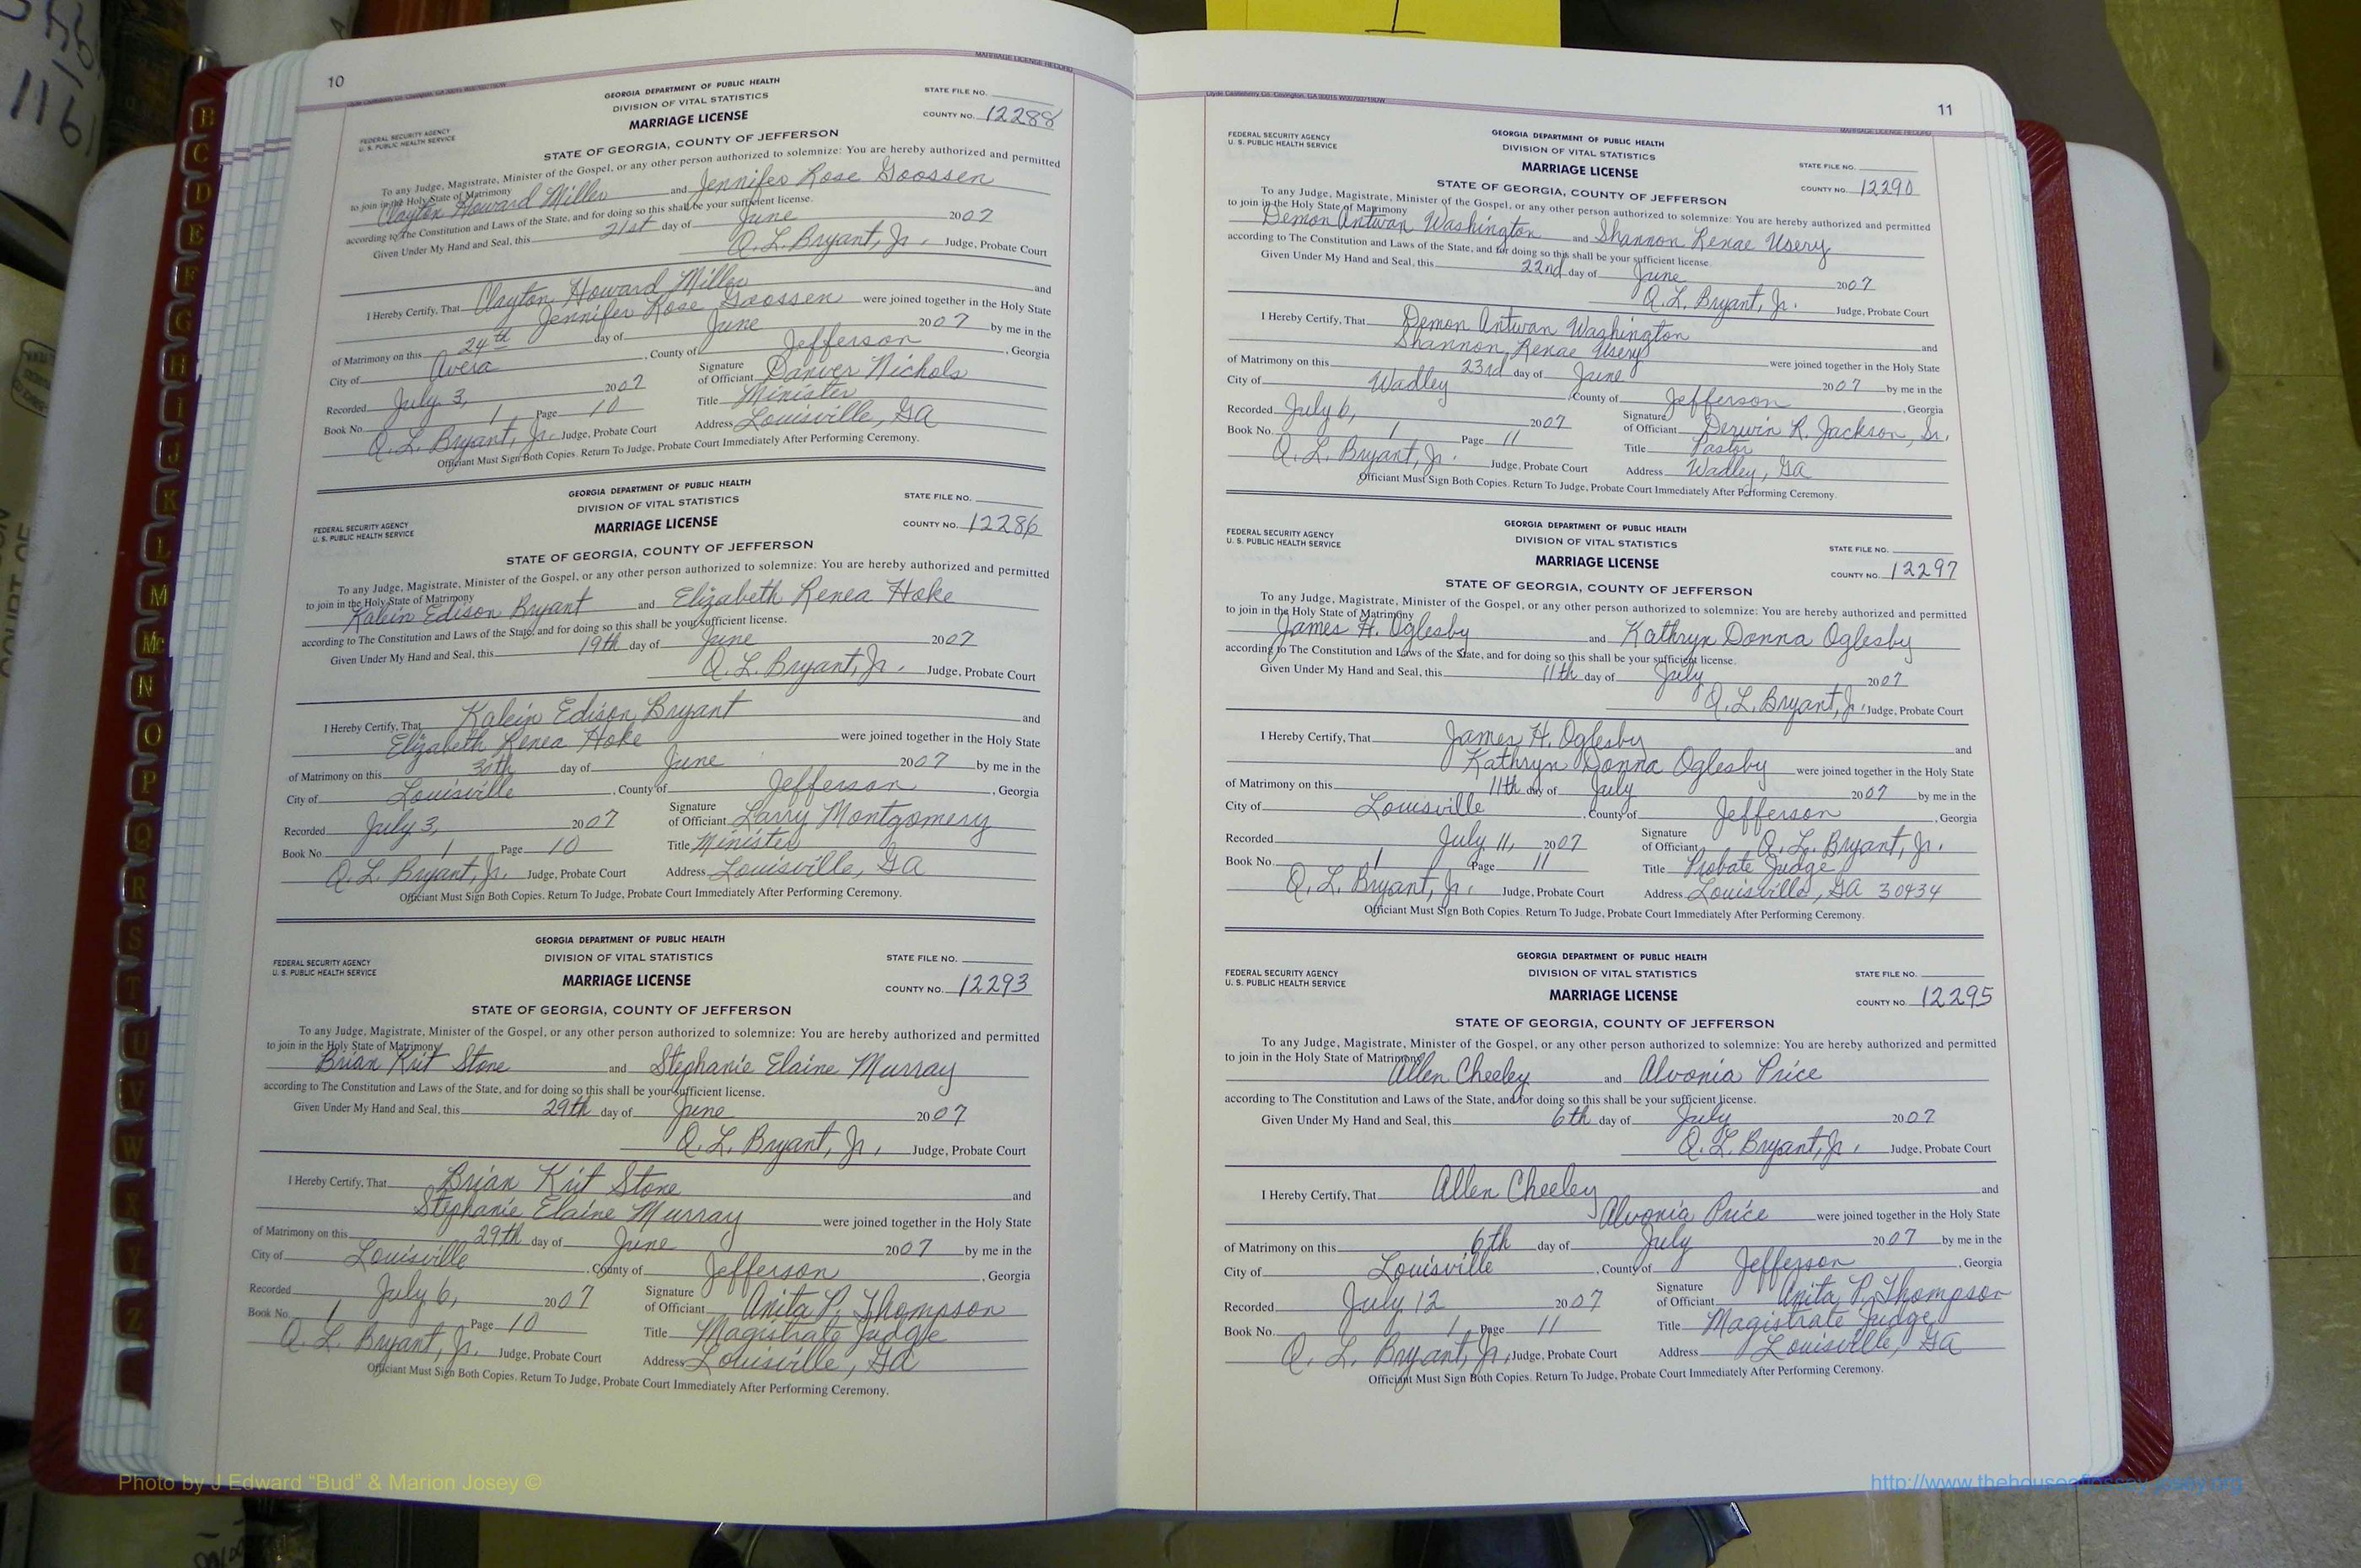 10
MARRIAGE LICENSE RECORD
GEORGIA DEPARTMENT OF PUBLIC HEALTH
DIVISION OF VITAL STATISTICS
MARRIAGE LICENSE
STATE FILE NO.
COUNTY NO. 12288
FEDERAL SECURITY AGENCY
U. S. PUBLIC HEALTH SERVICE
STATE OF GEORGIA, COUNTY OF JEFFERSON
To any Judge, Magistrate, Minister of the Gospel, or any other person authorized to solemnize: You are hereby authorized and permitted
to join in the Holy State of Matrimony
Clayton Howard Miller and Jennifer Rose Goossen
according to The Constitution and Laws of the State, and for doing so this shall be your sufficient license.
Given Under My Hand and Seal, this 21st day of June 2007
Q. L. Bryant, Jr. Judge, Probate Court
I Hereby Certify, That Clayton Howard Miller and
Jennifer Rose Goossen were joined together in the Holy State
of Matrimony on this 24th day of June 2007 by me in the
City of Avera, County of Jefferson, Georgia
Recorded July 3, 2007 Signature of Officiant Danver Nichols
Book No. 1 Page 10 Title Minister
Q. L. Bryant, Jr. Judge, Probate Court Address Louisville, GA
Officiant Must Sign Both Copies. Return To Judge, Probate Court Immediately After Performing Ceremony.
GEORGIA DEPARTMENT OF PUBLIC HEALTH
DIVISION OF VITAL STATISTICS
MARRIAGE LICENSE
STATE FILE NO.
COUNTY NO. 12286
FEDERAL SECURITY AGENCY
U. S. PUBLIC HEALTH SERVICE
STATE OF GEORGIA, COUNTY OF JEFFERSON
To any Judge, Magistrate, Minister of the Gospel, or any other person authorized to solemnize: You are hereby authorized and permitted
to join in the Holy State of Matrimony
Kalein Edison Bryant and Elizabeth Renea Hoke
according to The Constitution and Laws of the State, and for doing so this shall be your sufficient license.
Given Under My Hand and Seal, this 19th day of June 2007
Q. L. Bryant, Jr. Judge, Probate Court
I Hereby Certify, That Kalein Edison Bryant and
Elizabeth Renea Hoke were joined together in the Holy State
of Matrimony on this day of June 2007 by me in the
City of Louisville, County of Jefferson, Georgia
Recorded July 3, 2007 Signature of Officiant Larry Montgomery
Book No. 1 Page 10 Title Minister
Q. L. Bryant, Jr. Judge, Probate Court Address Louisville, GA
Officiant Must Sign Both Copies. Return To Judge, Probate Court Immediately After Performing Ceremony.
GEORGIA DEPARTMENT OF PUBLIC HEALTH
DIVISION OF VITAL STATISTICS
MARRIAGE LICENSE
STATE FILE NO.
COUNTY NO. 12293
FEDERAL SECURITY AGENCY
U. S. PUBLIC HEALTH SERVICE
STATE OF GEORGIA, COUNTY OF JEFFERSON
To any Judge, Magistrate, Minister of the Gospel, or any other person authorized to solemnize: You are hereby authorized and permitted
to join in the Holy State of Matrimony
Brian Krit Stone and Stephanie Elaine Murray
according to The Constitution and Laws of the State, and for doing so this shall be your sufficient license.
Given Under My Hand and Seal, this 29th day of June 2007
Q. L. Bryant, Jr. Judge, Probate Court
I Hereby Certify, That Brian Krit Stone and
Stephanie Elaine Murray were joined together in the Holy State
of Matrimony on this 29th day of June 2007 by me in the
City of Louisville, County of Jefferson, Georgia
Recorded July 6, 2007 Signature of Officiant Anita P. Thompson
Book No. 1 Page 10 Title Magistrate Judge
Q. L. Bryant, Jr. Judge, Probate Court Address Louisville, GA
Officiant Must Sign Both Copies. Return To Judge, Probate Court Immediately After Performing Ceremony.
11
MARRIAGE LICENSE RECORD
GEORGIA DEPARTMENT OF PUBLIC HEALTH
DIVISION OF VITAL STATISTICS
MARRIAGE LICENSE
STATE FILE NO.
COUNTY NO. 12290
FEDERAL SECURITY AGENCY
U. S. PUBLIC HEALTH SERVICE
STATE OF GEORGIA, COUNTY OF JEFFERSON
To any Judge, Magistrate, Minister of the Gospel, or any other person authorized to solemnize: You are hereby authorized and permitted
to join in the Holy State of Matrimony
Demon Antwan Washington and Shannon Renae Usery
according to The Constitution and Laws of the State, and for doing so this shall be your sufficient license.
Given Under My Hand and Seal, this 22nd day of June 2007
Q. L. Bryant, Jr. Judge, Probate Court
I Hereby Certify, That Demon Antwan Washington and
Shannon Renae Usery were joined together in the Holy State
of Matrimony on this 23rd day of June 2007 by me in the
City of Wadley, County of Jefferson, Georgia
Recorded July 6, 2007 Signature of Officiant Derwin R. Jackson, Sr.
Book No. 1 Page 11 Title Pastor
Q. L. Bryant, Jr. Judge, Probate Court Address Wadley, GA
Officiant Must Sign Both Copies. Return To Judge, Probate Court Immediately After Performing Ceremony.
GEORGIA DEPARTMENT OF PUBLIC HEALTH
DIVISION OF VITAL STATISTICS
MARRIAGE LICENSE
STATE FILE NO.
COUNTY NO. 12297
FEDERAL SECURITY AGENCY
U. S. PUBLIC HEALTH SERVICE
STATE OF GEORGIA, COUNTY OF JEFFERSON
To any Judge, Magistrate, Minister of the Gospel, or any other person authorized to solemnize: You are hereby authorized and permitted
to join in the Holy State of Matrimony
James H. Oglesby and Kathryn Donna Oglesby
according to The Constitution and Laws of the State, and for doing so this shall be your sufficient license.
Given Under My Hand and Seal, this 11th day of July 2007
Q. L. Bryant, Jr. Judge, Probate Court
I Hereby Certify, That James H. Oglesby and
Kathryn Donna Oglesby were joined together in the Holy State
of Matrimony on this 11th day of July 2007 by me in the
City of Louisville, County of Jefferson, Georgia
Recorded July 11, 2007 Signature of Officiant Q. L. Bryant, Jr.
Book No. 1 Page 11 Title Probate Judge
Q. L. Bryant, Jr. Judge, Probate Court Address Louisville, GA 30434
Officiant Must Sign Both Copies. Return To Judge, Probate Court Immediately After Performing Ceremony.
GEORGIA DEPARTMENT OF PUBLIC HEALTH
DIVISION OF VITAL STATISTICS
MARRIAGE LICENSE
STATE FILE NO.
COUNTY NO. 12295
FEDERAL SECURITY AGENCY
U. S. PUBLIC HEALTH SERVICE
STATE OF GEORGIA, COUNTY OF JEFFERSON
To any Judge, Magistrate, Minister of the Gospel, or any other person authorized to solemnize: You are hereby authorized and permitted
to join in the Holy State of Matrimony
Allen Cheeley and Alvonia Price
according to The Constitution and Laws of the State, and for doing so this shall be your sufficient license.
Given Under My Hand and Seal, this 6th day of July 2007
Q. L. Bryant, Jr. Judge, Probate Court
I Hereby Certify, That Allen Cheeley and
Alvonia Price were joined together in the Holy State
of Matrimony on this 6th day of July 2007 by me in the
City of Louisville, County of Jefferson, Georgia
Recorded July 12 2007 Signature of Officiant Anita P. Thompson
Book No. 1 Page 11 Title Magistrate Judge
Q. L. Bryant, Jr. Judge, Probate Court Address Louisville, GA
Officiant Must Sign Both Copies. Return To Judge, Probate Court Immediately After Performing Ceremony.
B
C
D
E
F
G
H
I
J
K
L
M
Mc
N
O
P
Q
R
S
T
U
V
W
X
Y
Z
Photo by J Edward “Bud” & Marion Josey ©